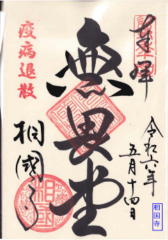 奉拝
令和六年
五月十四日
無畏堂
疫病退散
相國寺
相国寺